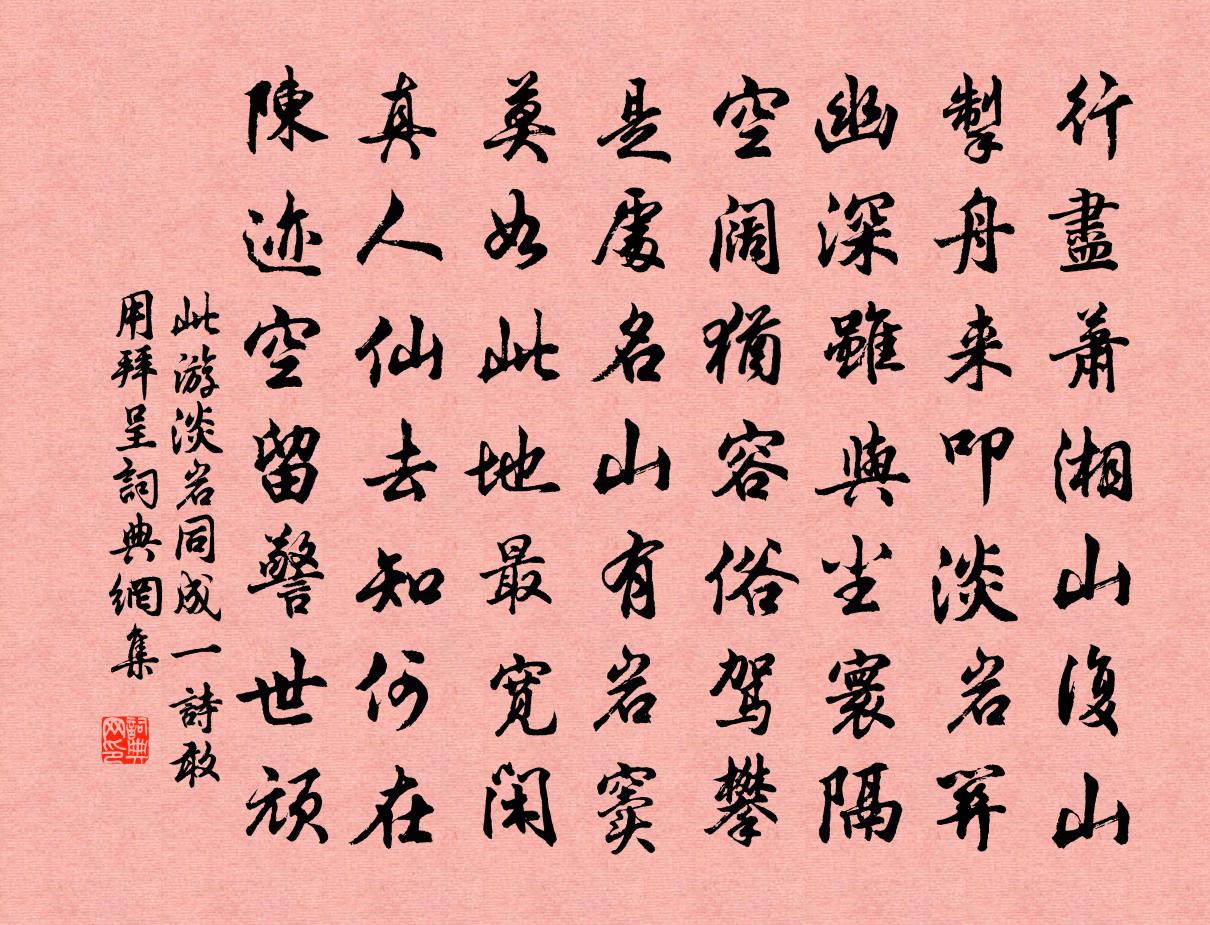 行盡蕭湘山復山
掣舟来叩淡岩关
幽深雖與尘寰隔
空阔猶容俗驾攀
是處名山有岩窦
莫如此地最宽闲
真人仙去知何在
陳迹空留警世顽
此游淡岩同成一詩敢
用拜呈詞典網集
詞典网印